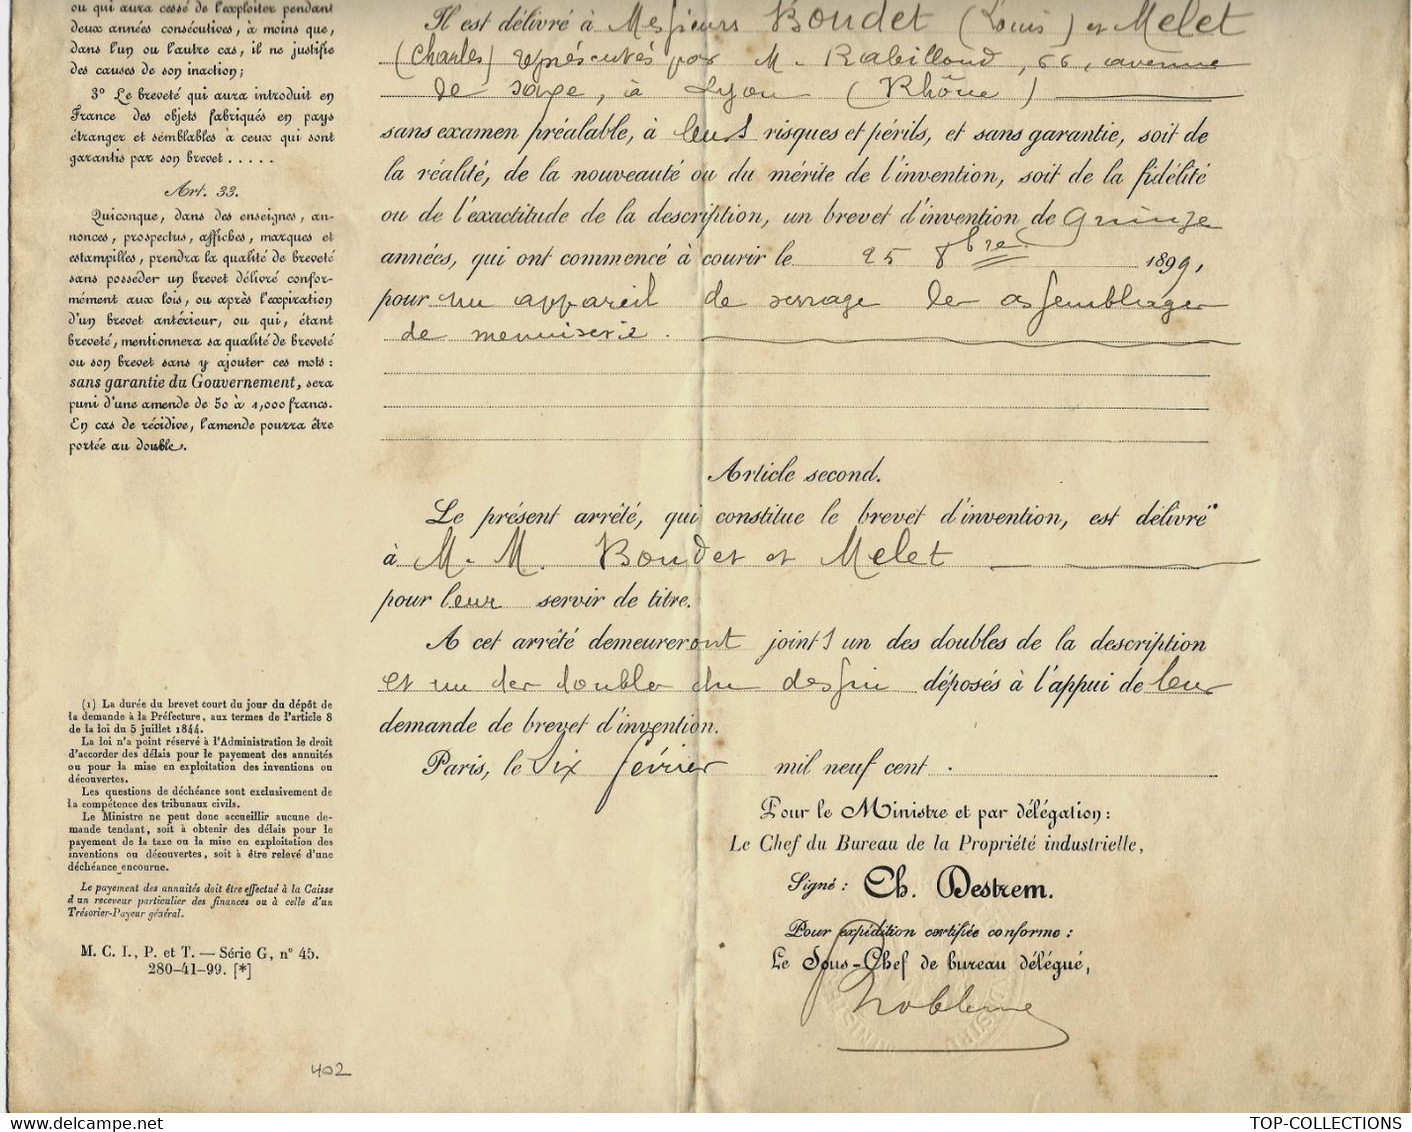 ou qui aura cessé de l'exploiter pendant
deux années consécutives, à moins que,
dans l'un ou l'autre cas, il ne justifie
des causes de son inaction;
3° Le breveté qui aura introduit en
France des objets fabriqués en pays
étranger et semblables à ceux qui sont
garantis par son brevet . . . . .
Art. 33.
Quiconque, dans des enseignes, an-
nonces, prospectus, affiches, marques et
estampilles, prendra la qualité de breveté
sans posséder un brevet délivré confor-
mément aux lois, ou après l'expiration
d'un brevet antérieur, ou qui, étant
breveté, mentionnera sa qualité de breveté
ou son brevet sans y ajouter ces mots :
sans garantie du Gouvernement, sera
puni d'une amende de 50 à 1,000 francs.
En cas de récidive, l'amende pourra être
portée au double.
(1) La durée du brevet court du jour du dépôt de
la demande à la Préfecture, aux termes de l'article 8
de la loi du 5 juillet 1844.
La loi n'a point réservé à l'Administration le droit
d'accorder des délais pour le payement des annuités
ou pour la mise en exploitation des inventions ou
découvertes.
Les questions de déchéance sont exclusivement de
la compétence des tribunaux civils.
Le Ministre ne peut donc accueillir aucune de-
mande tendant, soit à obtenir des délais pour le
payement de la taxe ou la mise en exploitation des
inventions ou découvertes, soit à être relevé d'une
déchéance encourue.
Le payement des annuités doit être effectué à la Caisse
d'un receveur particulier des finances ou à celle d'un
Trésorier-Payeur général.
M. C. I., P. et T. — Série G, n° 45.
280-41-99. [*]
402
Il est délivré à Messieurs Boudet (Louis) et Melet
(Charles) représentés par M. Rabilloud, 66, avenue
de Saxe, à Lyon (Rhône)
sans examen préalable, à leurs risques et périls, et sans garantie, soit de
la réalité, de la nouveauté ou du mérite de l'invention, soit de la fidélité
ou de l'exactitude de la description, un brevet d'invention de quinze
années, qui ont commencé à courir le 25 8bre 1899,
pour un appareil de serrage des assemblages
de menuiserie.
Article second.
Le présent arrêté, qui constitue le brevet d'invention, est délivré
à M. M. Boudet et Melet
pour leur servir de titre.
A cet arrêté demeureront joints un des doubles de la description
et un des doubles du dessin déposés à l'appui de leur
demande de brevet d'invention.
Paris, le six février mil neuf cent.
Pour le Ministre et par délégation :
Le Chef du Bureau de la Propriété industrielle,
Signé : Ch. Destrem.
Pour expédition certifiée conforme :
Le Sous-Chef de bureau délégué,
TOP-COLLECTIONS